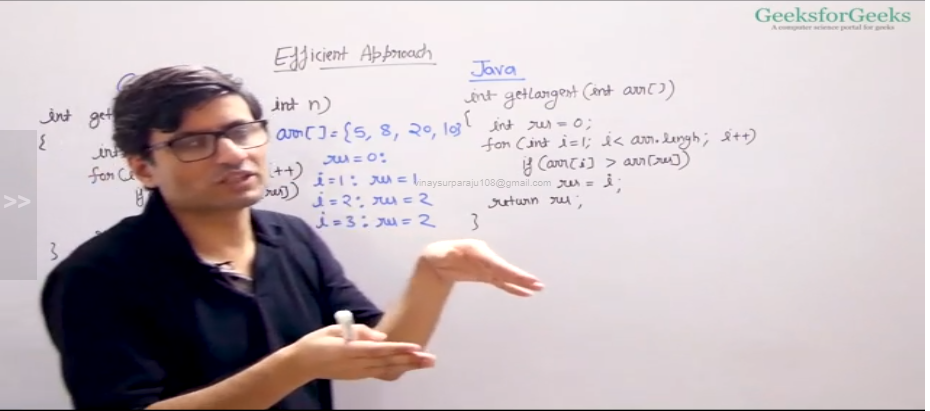 GeeksforGeeks
A computer science portal for geeks
Efficient Approach
int get
int n)
{
int
for(i
++)
res])
}
arr[] = {5, 8, 20, 10}
res = 0:
i=1: res=1
i=2: res=2
i=3: res=2
Java
int getLargest(int arr[])
{
int res = 0;
for(int i=1; i< arr.lengh; i++)
if(arr[i] > arr[res])
res = i;
return res;
}
vinaysurparaju108@gmail.com
>>